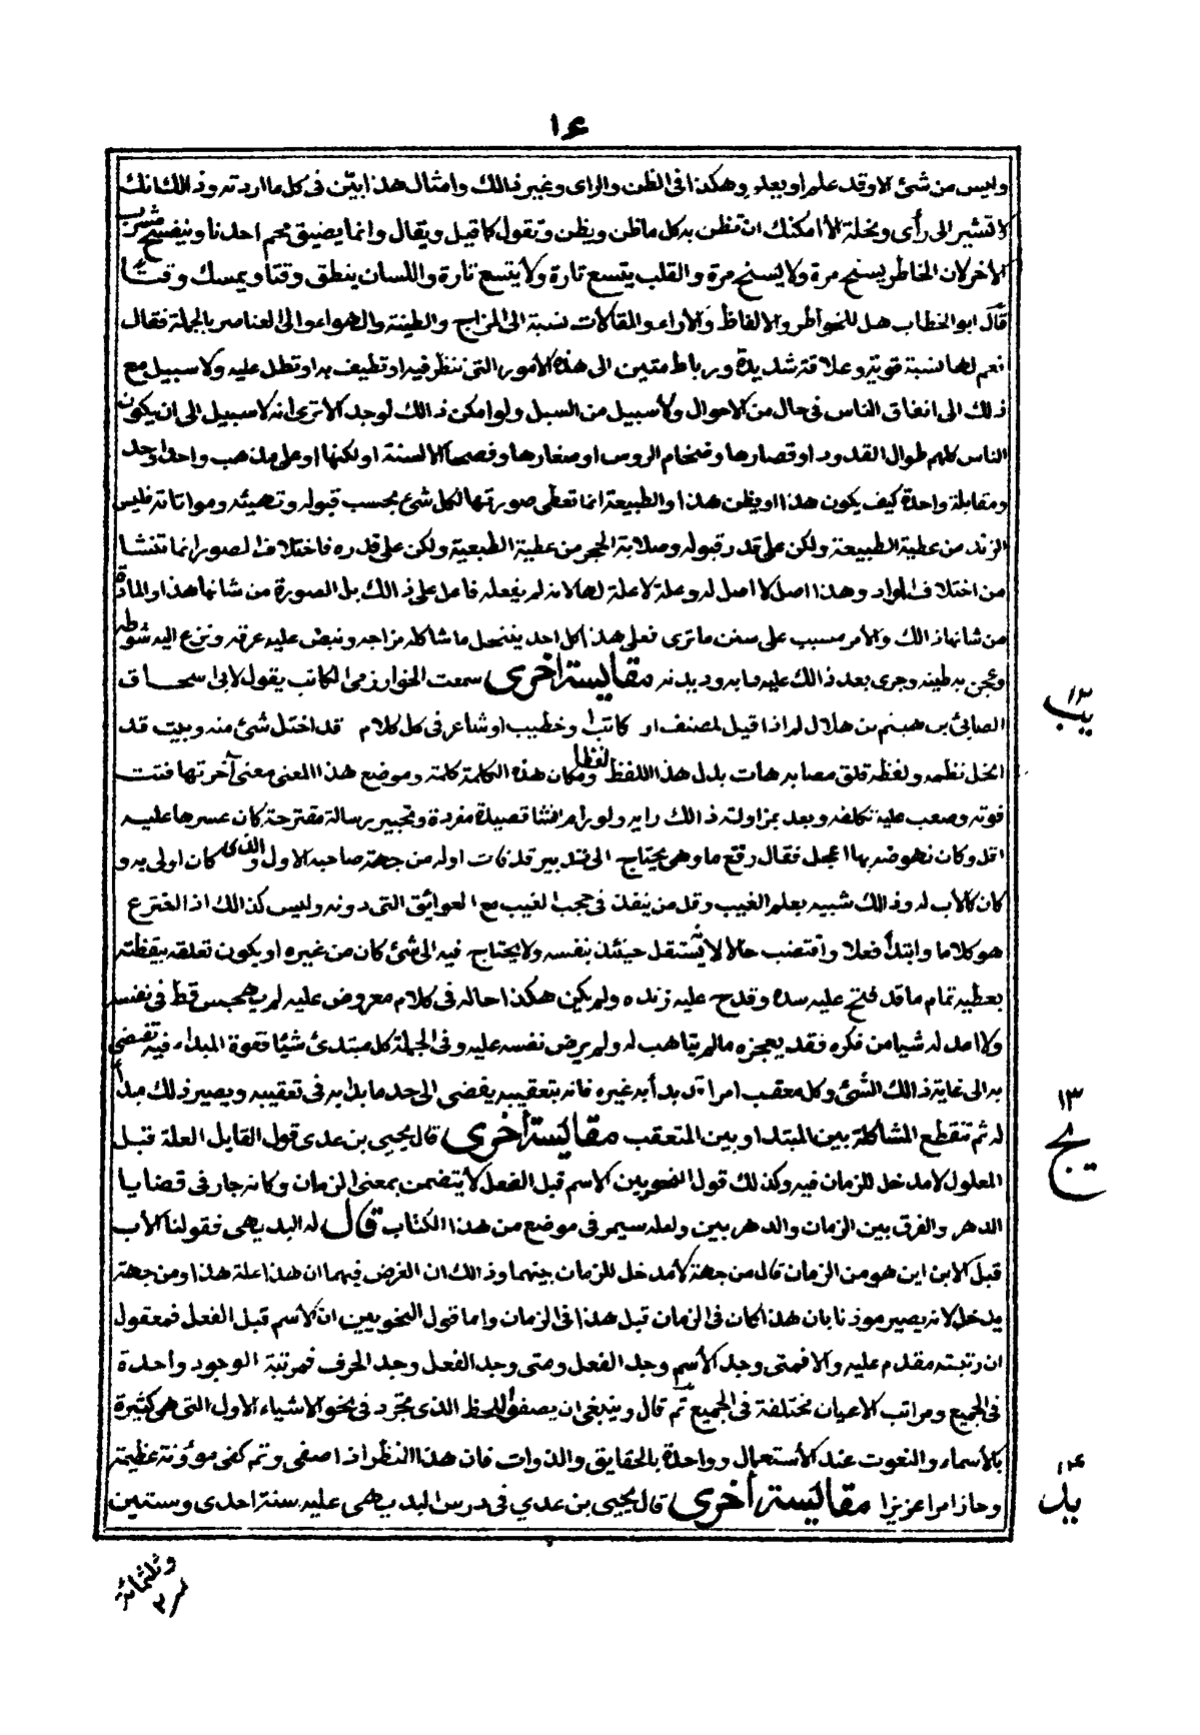 ١٤
وليس من شئ الا وقد علم او يعلم وهكذا فى الظن والراى وغير ذالك وامثال هذا بيّن فى كل ما اردته وذالك انك
لا تشير الى رأى ونحلة الا امكنك ان تظن به كل ما ظن ويظن وتقول كما قيل ويقال وانما يضيق مجم احدنا وينفسح شرب
الاخر لان الخاطر يسنح مرة ولا يسنح مرة والقلب يتسع تارة ولا يتسع تارة واللسان ينطق وقتا ويمسك وقتًا
قال ابو الخطاب هل للخواطر والالفاظ والاراء والمقالات نسبة الى المزاج والطينة والهواء والى العناصر بالجملة فقال
نعم لها نسبة قوية وعلاقة شديدة ورباط متين الى هذه الأمور التى ننظر فيه او تطيف به او تطل عليه ولا سبيل مع
ذلك الى اتفاق الناس فى حال من الاحوال ولا سبيل من السبل ولو امكن ذالك لوجد الا ترى انه لا سبيل الى ان يكون
الناس كلهم طوال القدود او قصارها وضخام الروس او صغارها وفصحاء الالسنة او لكنها او على مذهب واحد
ومقابلة واحدة كيف يكون هذا او يظن هذا والطبيعة انما تعطى صورتها لكل شئ بحسب قبوله وتهيئه ومواتاته فليس
الزند من عطية الطبيعة ولكن على قدر قبوله وصلابة الحجر من عطية الطبعية ولكن على قدره فاختلاف الصور انما تنشا
من اختلاف المواد وهذا اصل لا اصل له وعلة لا علة لها لانه لم يفعله فاعل على ذالك بل الصورة من شانها هذا والمادة
من شانها ذالك والأمر مسبب على سنن ما ترى فعلى هذا كل احد ينتحل ما شاكله مزاجه ونبض عليه عرقه ونزع اليه شوطه
وعجن به طينه وجرى بعد ذالك عليه دابه وديدنه مقابسة اخرى سمعت الخوارزمى الكاتب يقول لابى سحاق
الصابئ بن هلال لم اذا قيل لمصنف او كاتب او خطيب او شاعر فى كل كلام قد اختل شئ منه وبيت قد
انحل نظمه ولفظه قلق مصابه هات بدل هذا اللفظ لفظا ومكان هذه الكلمة كلمة وموضع هذا المعنى معنى آخر تهافتت
قوته وصعب عليه تكلفه وبعد بمزاولته ذالك رايه ولو رام انشا قصيدة مفردة وتحبير رسالة مقترحة كان عسرها عليه
اقل وكان نهوضه بها اعجل فقال رقع ما وهى يحتاج الى تدبير قد فات اوله من جهة صاحبه الاول والذى كان اولى به و
كان كالأب له وذالك شبيه بعلم الغيب وقل من ينفذ فى حجب الغيب مع العوائق التى دونه وليس كذالك اذا افترع
هو كلاما وابتدأ فعلا واقتضب حالا لا يستقل حينئذ بنفسه ولا يحتاج فيه الى شئ كان من غيره او يكون تعلقه بيقظته
يعطيه تمام ما قد فتح عليه سده وقدح عليه زنده ولم يكن هكذا حاله فى كلام معروض عليه لم يهجس قط فى نفسه
ولا اعد له شيا من فكره فقد يعجزه ما لم يتاهب له ولم يرض نفسه عليه وفى الجملة كل مبتدئ شيئا فقوة المبداء فيه تفضى
به الى غاية ذالك الشئ وكل معقب امرا قد بدأ به غيره فانه بتعقيبه يفضى الى حد ما بدا به فى تعقيبه ويصير ذلك مبدأ
له ثم تنقطع المشاكلة بين المبتدا وبين المتعقب مقابسة أخرى قال يحيى بن عدى قول القايل العلة قبل
المعلول لا مدخل للزمان فيه وكذلك قول النحويين الاسم قبل الفعل لا يتضمن بمعنى الزمان وكانه جار فى قضايا
الدهر والفرق بين الزمان والدهر بين ولعله سيمر فى موضع من هذا الكتاب قال له البديهى فقولنا الأب
قبل الابن اين هو من الزمان قال من جهة لا مدخل للزمان بينهما وذالك ان الغرض فيهما ان هذا علة هذا ومن جهة
يدخل لانه يصير موذنا بان هذا كان فى الزمان قبل هذا فى الزمان واما قول النحويين ان الأسم قبل الفعل فمعقول
ان رتبته مقدم عليه والا فمتى وجد الأسم وجد الفعل ومتى وجد الفعل وجد الحرف فمرتبة الوجود واحدة
فى الجميع ومراتب الاعيان مختلفة فى الجميع ثم قال وينبغى ان يصفو اللحظ الذى يجرد فى نحو الاشياء الاول التى هى كثيرة
بالأسماء والنعوت عند الأستعمال وواحدة بالحقايق والذوات فان هذا النظر اذا صفى وتم كفى مؤونة عظيمة
وحاز امرا عزيزا مقابسة أخرى قال يحيى بن عدي فى درس البديهى عليه سنة احدى وستين
وثلثمائة
١٢
يب
١٣
يج
١٤
يد